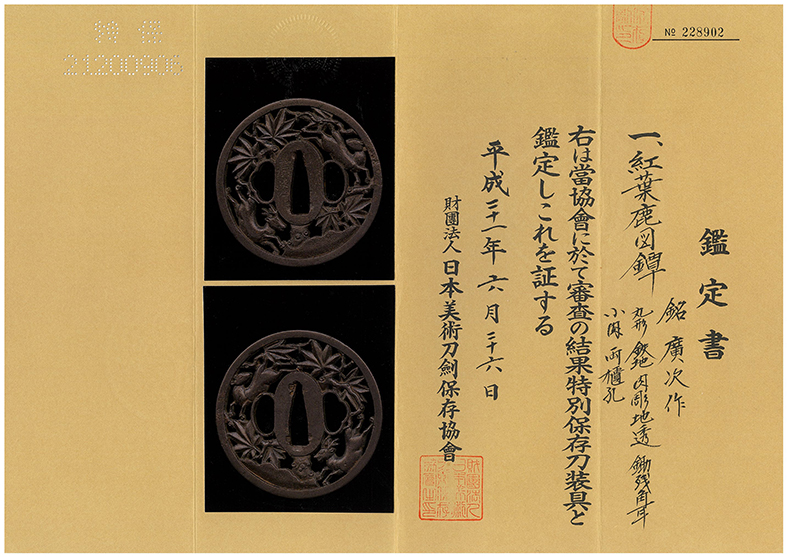 № 228902
鑑定書
一、紅葉鹿図鐔
銘 廣次作
丸形 鉄地 肉彫地透 鋤残角耳
小肉 両櫃孔
右は當協會に於て審査の結果特別保存刀装具と
鑑定しこれを証する
平成二十一年 六月 二十六日
財團法人 日本美術刀劍保存協會
21200906